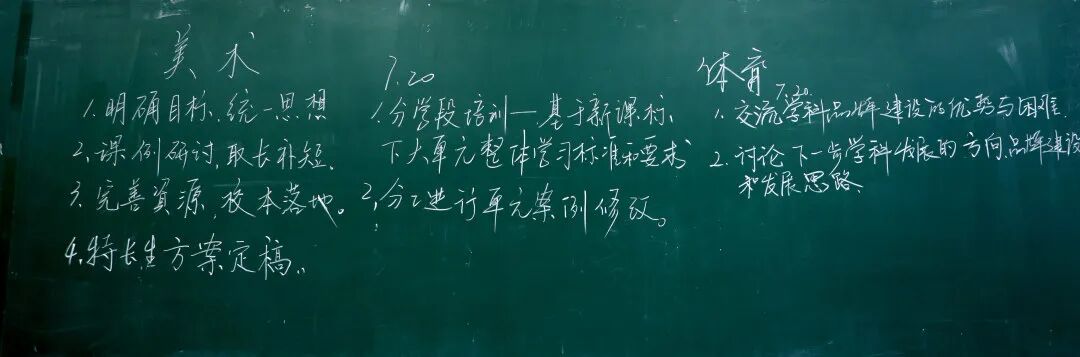 美术
1.明确目标、统一思想
2.课例研讨,取长补短.
3.完善资源,校本落地。
4.特长生方案定稿.
7.20
1.分学段培训—基于新课标、
下大单元整体学习标准和要求
2.分工进行单元案例修改。
体育
7.20
1.交流学科品牌建设的优势与困难.
2.讨论下一步学科发展的方向,品牌建设
和发展思路